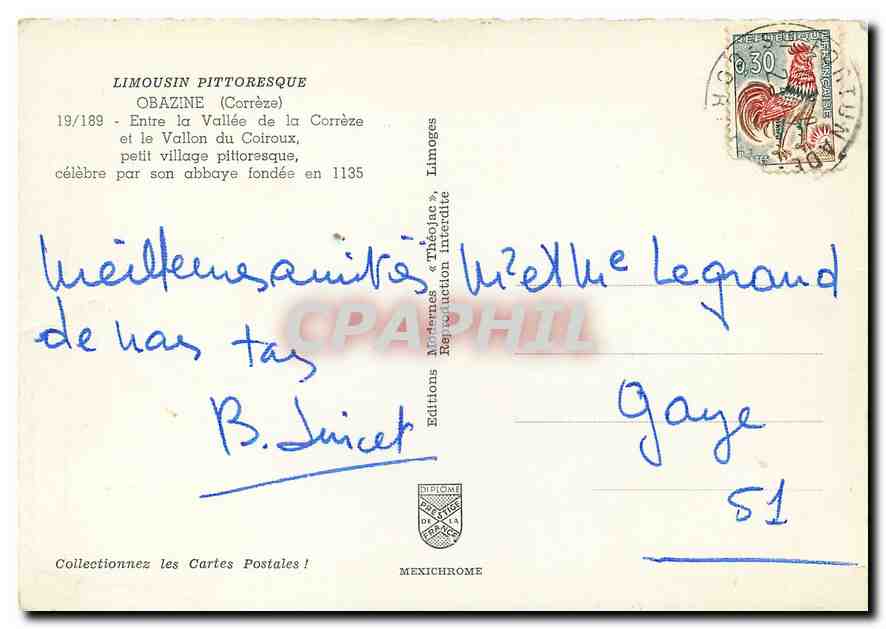 LIMOUSIN PITTORESQUE
OBAZINE (Corrèze)
19/189 - Entre la Vallée de la Corrèze
et le Vallon du Coiroux,
petit village pittoresque,
célèbre par son abbaye fondée en 1135
Meilleures amitiés
de nous tous
B.
Collectionnez les Cartes Postales !
Editions Modernes « Théojac », Limoges
Reproduction interdite
DIPLOME
PRESTIGE
DE LA
FRANCE
MEXICHROME
REPUBLIQUE FRANÇAISE
0,30
CORTUNADE
Mr et Me Legrand
Gaye
51
CPAPHIL